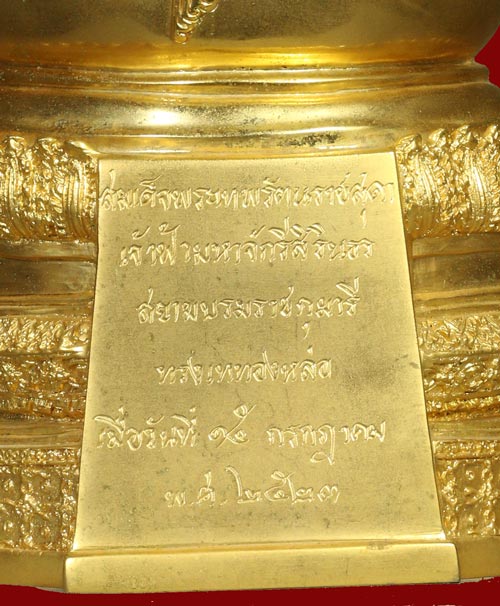 สมเด็จพระเทพรัตนราชสุดา
เจ้าฟ้ามหาจักรีสิรินธร
สยามบรมราชกุมารี
ทรงเททองหล่อ
เมื่อวันที่ ๑๕ กรกฎาคม
พ.ศ.๒๕๒๓